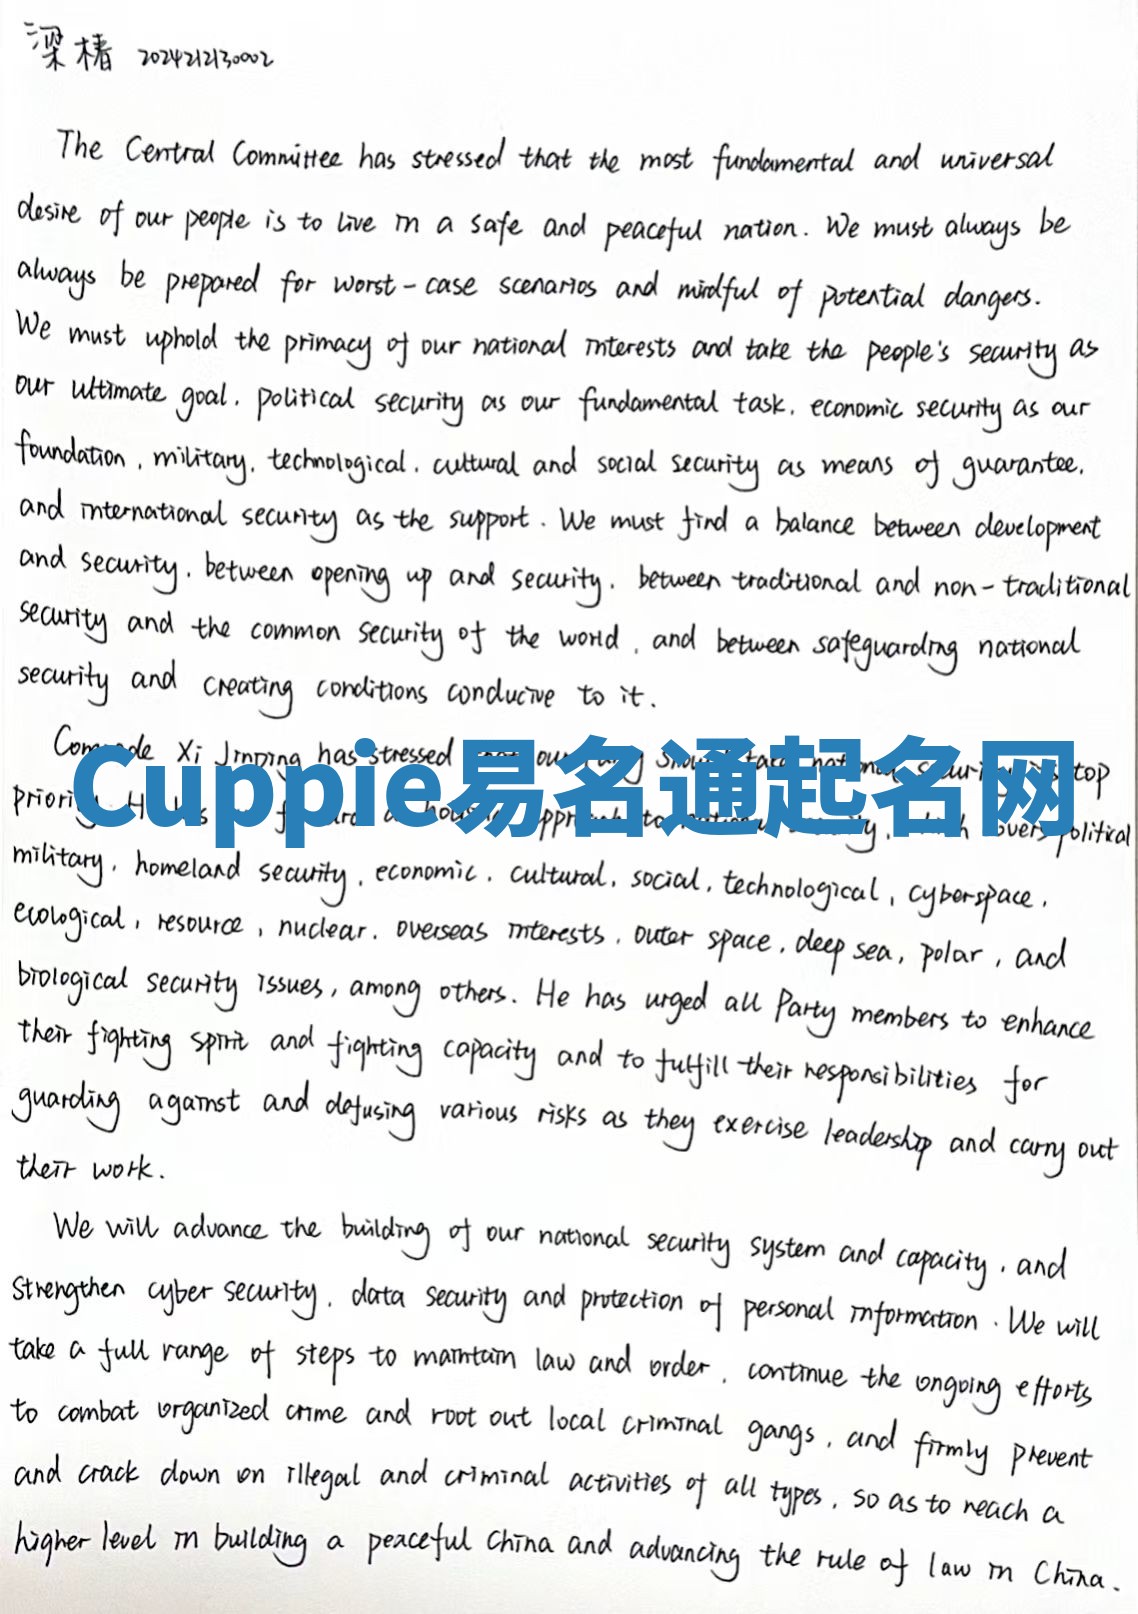 梁椿 2024212130002
The Central Committee has stressed that the most fundamental and universal
desire of our people is to live in a safe and peaceful nation. We must always be
always be prepared for worst-case scenarios and mindful of potential dangers.
We must uphold the primacy of our national interests and take the people's security as
our ultimate goal, political security as our fundamental task, economic security as our
foundation, military, technological, cultural and social security as means of guarantee,
and international security as the support. We must find a balance between development
and security, between opening up and security, between traditional and non-traditional
security and the common security of the world, and between safeguarding national
security and creating conditions conducive to it.
Comrade Xi Jinping has stressed our take top
Cuppie易名通起名网
political
military, homeland security, economic, cultural, social, technological, cyberspace,
ecological, resource, nuclear, overseas interests, outer space, deep sea, polar, and
biological security issues, among others. He has urged all Party members to enhance
their fighting spirit and fighting capacity and to fulfill their responsibilities for
guarding against and defusing various risks as they exercise leadership and carry out
their work.
We will advance the building of our national security system and capacity, and
strengthen cyber security, data security and protection of personal information. We will
take a full range of steps to maintain law and order, continue the ongoing efforts
to combat organized crime and root out local criminal gangs, and firmly prevent
and crack down on illegal and criminal activities of all types, so as to reach a
higher level in building a peaceful China and advancing the rule of law in China.